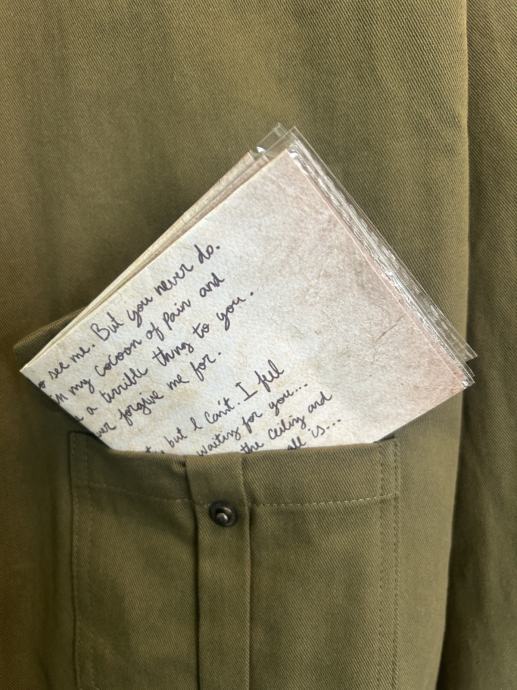 see me. But you never do.
in my cocoon of pain and
a terrible thing to you.
forgive me for.
but I can't I feel
waiting for you...
the ceiling and
all is...